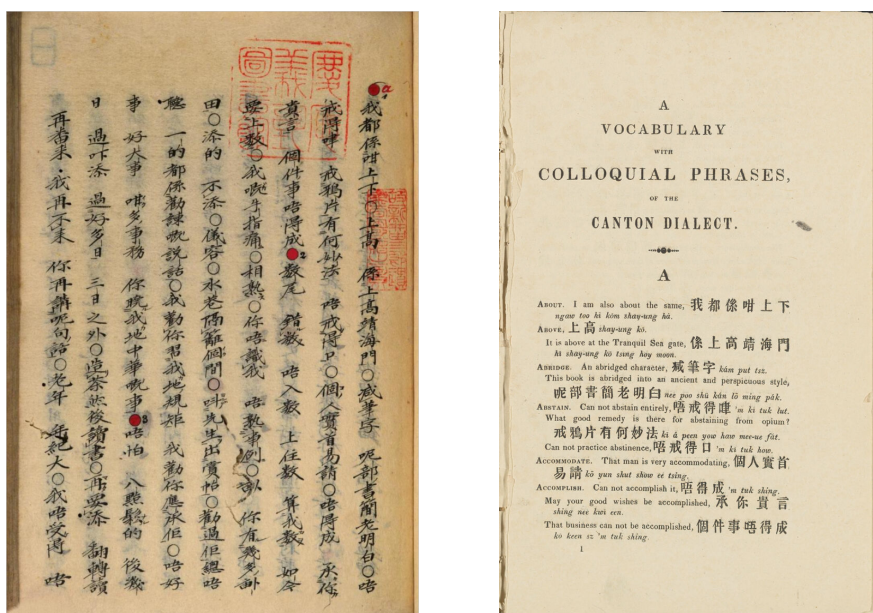 我都係咁上下〇上高 係上高靖海門〇減筆字 呢部書簡老明白〇唔
戒得嘩 戒鴉片有何妙法 唔戒得口〇個人實首易請〇唔得成 承你
貴言 個件事唔得成 2 數尾 錯數 唔入數 上住數 算我數 如今
要上數〇我嘅手指痛〇相熟〇你唔識我 唔熟事例〇 你有幾多
田〇添的 不添〇儀容〇永巷隔離個間〇叫先生出賞帖〇勸過佢總唔
聽 一的都係勸諫嘅說話〇我勸你習我地規矩 我勸你應承佢〇唔好
事 好大事 咁多事務 你曉我地中華嘅事 3 唔怕 八點鬆的 後幾
日 過吓添 過好多日 三日之外〇造茶然後讀書〇再要添 翻轉讀
再番來 我再不來 你再講呢句話〇老年 年紀大〇我唔受得 唔
A
VOCABULARY
WITH
COLLOQUIAL PHRASES,
OF THE
CANTON DIALECT.
A
ABOUT. I am also about the same, 我都係咁上下
ngaw too hi kòm shay-ung há.
ABOVE, 上高 shay-ung kō.
It is above at the Tranquil Sea gate, 係上高靖海門
hi shay-ung kō tsing hoy moon.
ABRIDGE. An abridged character, 減筆字 kám put tsz.
This book is abridged into an ancient and perspicuous style,
呢部書簡老明白 nee poo shū kán lō ming pák.
ABSTAIN. Can not abstain entirely, 唔戒得嘩 'm ki tuk lut.
What good remedy is there for abstaining from opium?
戒鴉片有何妙法 ki á peen yow haw mee-ue fát.
Can not practice abstinence, 唔戒得口 'm ki tuk how.
ACCOMMODATE. That man is very accommodating, 個人實首
易請 kō yun shut show ee tsing.
ACCOMPLISH. Can not accomplish it, 唔得成 'm tuk shing.
May your good wishes be accomplished, 承你貴言
shing nee kwi een.
That business can not be accomplished, 個件事唔得成
ko keen sz 'm tuk shing.
1